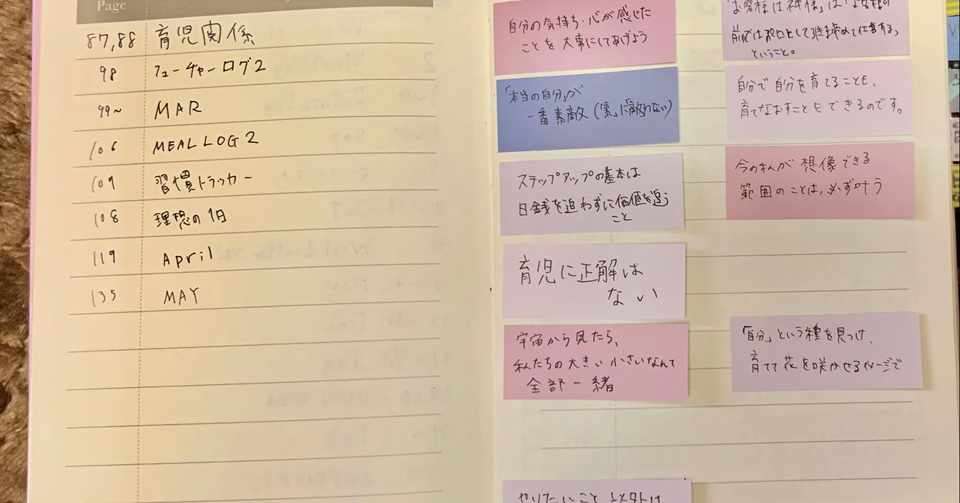 Page
87,88 育児関係
98 フューチャーログ2
99~ MAR
106 MEAL LOG 2
109 習慣トラッカー
108 理想の1日
119 April
135 MAY
自分の気持ち・心が感じた
ことを大事にしてあげよう
「本当の自分」が
一番素敵
ステップアップの基本は
目銭を追わずに価値を追う
こと
育児に正解は
ない
宇宙から見たら、
私たちの大きい小さいなんて
全部一緒
やりたいこと
「お客様は神様」は
ということ。
自分で自分を育てることも、
育てなおすこともできるのです。
今の私が想像できる
範囲のことは、必ず叶う
「自分」という種を見つけ、
育てて花を咲かせるイメージで